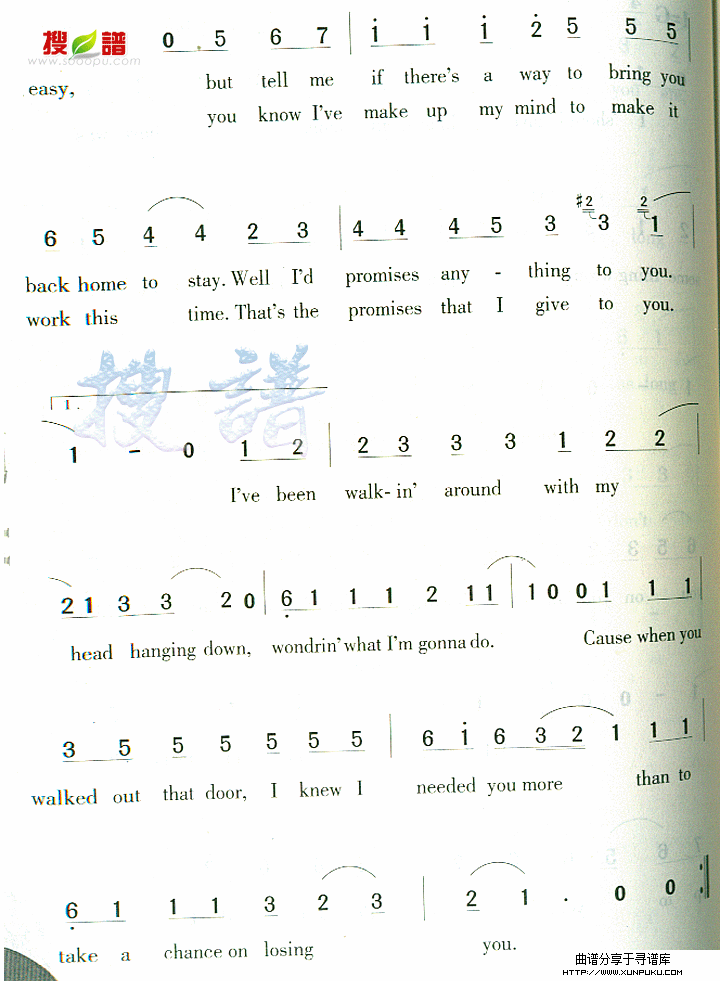 搜谱
www.sooopu.com
0 . 5 6 7 | i i i 2 5 5 5 |
easy, but tell me if there's a way to bring you
you know I've make up my mind to make it
6 5 4 4 2 3 | 4 4 4 5 3 #2 3 2 1 |
back home to stay. Well I'd promises any - thing to you.
work this time. That's the promises that I give to you.
搜 譜
1.
1 - 0 1 2 | 2 3 3 3 1 2 2 |
I've been walk- in' around with my
2 1 3 3 2 0 | 6 1 1 1 2 1 1 | 1 0 0 1 1 1 |
head hanging down, wondrin' what I'm gonna do. Cause when you
3 5 5 5 5 5 5 | 6 i 6 3 2 1 1 1 |
walked out that door, I knew I needed you more than to
6 1 1 1 3 2 3 | 2 1 . 0 0 :|
take a chance on losing you.
曲谱分享于寻谱库
HTTP://WWW.XUNPUKU.COM